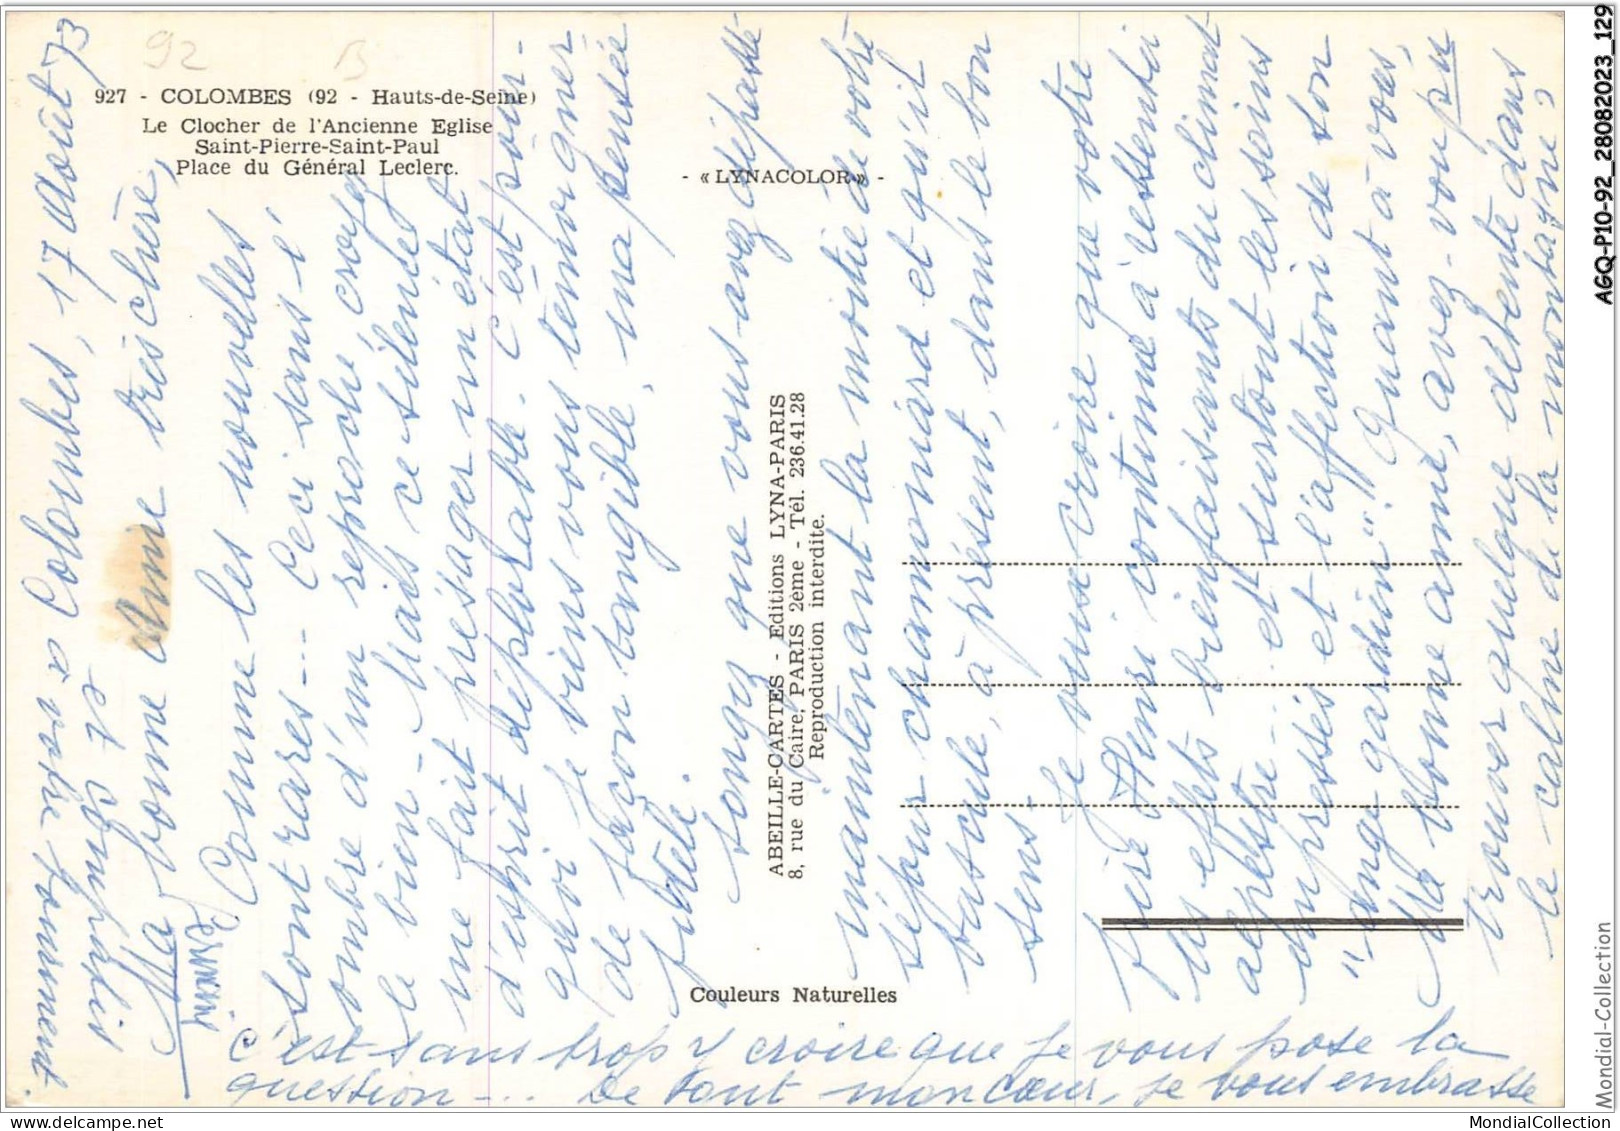 92 B
927 - COLOMBES (92 - Hauts-de-Seine)
Le Clocher de l'Ancienne Eglise
Saint-Pierre-Saint-Paul
Place du Général Leclerc.
- « LYNACOLOR » -
ABEILLE-CARTES - Editions LYNA-PARIS
8, rue du Caire, PARIS 2ème - Tél. 236.41.28
Reproduction interdite.
Couleurs Naturelles
Colombes, 17 Août 73
Ma bonne Amie très chère,
Comme les nouvelles
sont rares... Ceci sans l'
ombre d'un reproche croyez
le bien - Mais ce silence
me fait présager un état
d'esprit déplorable. C'est pour-
quoi je viens vous témoigner
de façon tangible, ma pensée
fidèle.
Songez que vous avez dépassé
maintenant la moitié de votre
séjour chamoniard et qu'il
bascule, à présent, dans le bon
sens -
Je veux croire que votre
cher Henri continue à ressentir
les effets bienfaisants du climat
alpestre... et surtout les soins
empressés et l'affection de son
"ange gardien". Quant à vous,
Ma bonne amie, avez-vous pu
trouver quelque détente dans
le calme de la montagne ?
C'est sans trop y croire que je vous pose la
question .... De tout mon cœur, je vous embrasse
et compris
à votre
Germaine
AGQ-P10-92_28082023_129
Mondial-Collection
MondialCollection